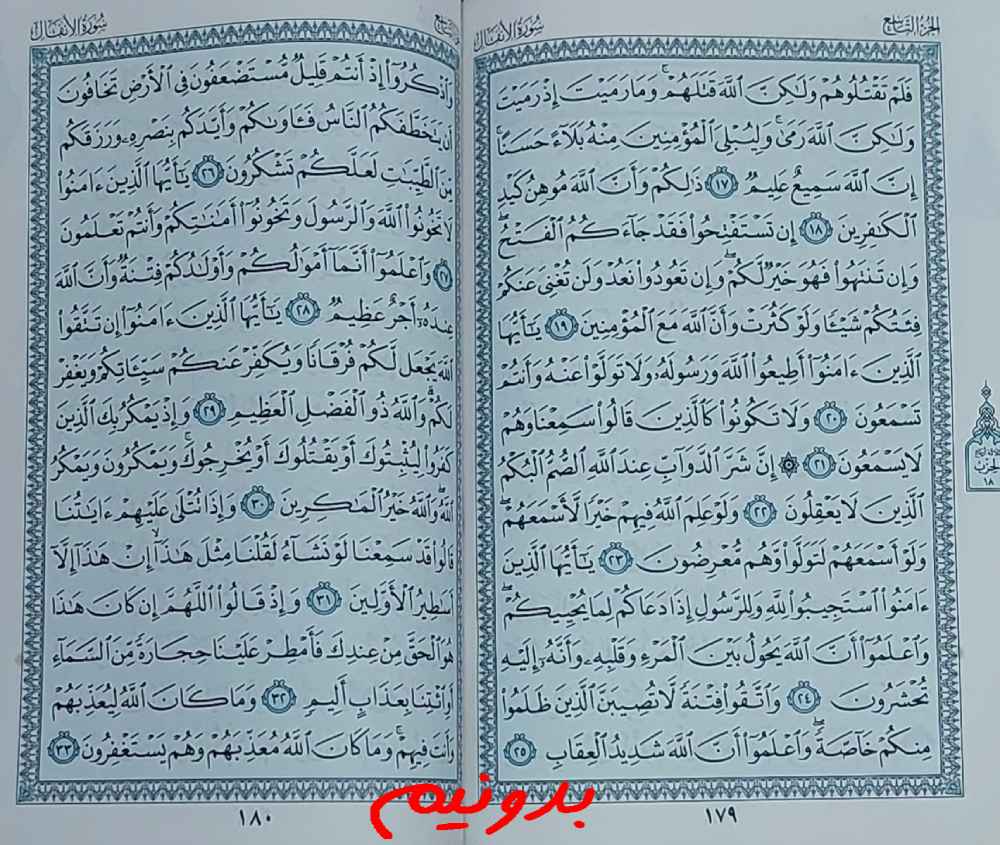 الجزء التاسع
سورة الأنفال
فَلَمْ تَقْتُلُوهُمْ وَلَٰكِنَّ ٱللَّهَ قَتَلَهُمْ ۚ وَمَا رَمَيْتَ إِذْ رَمَيْتَ
وَلَٰكِنَّ ٱللَّهَ رَمَىٰ ۚ وَلِيُبْلِىَ ٱلْمُؤْمِنِينَ مِنْهُ بَلَآءً حَسَنًا ۚ
إِنَّ ٱللَّهَ سَمِيعٌ عَلِيمٌ ١٧ ذَٰلِكُمْ وَأَنَّ ٱللَّهَ مُوهِنُ كَيْدِ
ٱلْكَٰفِرِينَ ١٨ إِن تَسْتَفْتِحُوا۟ فَقَدْ جَآءَكُمُ ٱلْفَتْحُ ۖ
وَإِن تَنتَهُوا۟ فَهُوَ خَيْرٌ لَّكُمْ ۖ وَإِن تَعُودُوا۟ نَعُدْ وَلَن تُغْنِىَ عَنكُمْ
فِئَتُكُمْ شَيْـًٔا وَلَوْ كَثُرَتْ وَأَنَّ ٱللَّهَ مَعَ ٱلْمُؤْمِنِينَ ١٩ يَٰٓأَيُّهَا
ٱلَّذِينَ ءَامَنُوٓا۟ أَطِيعُوا۟ ٱللَّهَ وَرَسُولَهُۥ وَلَا تَوَلَّوْا۟ عَنْهُ وَأَنتُمْ
تَسْمَعُونَ ٢٠ وَلَا تَكُونُوا۟ كَٱلَّذِينَ قَالُوا۟ سَمِعْنَا وَهُمْ
لَا يَسْمَعُونَ ٢١ ۞ إِنَّ شَرَّ ٱلدَّوَآبِّ عِندَ ٱللَّهِ ٱلصُّمُّ ٱلْبُكْمُ
ٱلَّذِينَ لَا يَعْقِلُونَ ٢٢ وَلَوْ عَلِمَ ٱللَّهُ فِيهِمْ خَيْرًا لَّأَسْمَعَهُمْ ۖ
وَلَوْ أَسْمَعَهُمْ لَتَوَلَّوا۟ وَّهُم مُّعْرِضُونَ ٢٣ يَٰٓأَيُّهَا ٱلَّذِينَ
ءَامَنُوا۟ ٱسْتَجِيبُوا۟ لِلَّهِ وَلِلرَّسُولِ إِذَا دَعَاكُمْ لِمَا يُحْيِيكُمْ ۖ
وَٱعْلَمُوٓا۟ أَنَّ ٱللَّهَ يَحُولُ بَيْنَ ٱلْمَرْءِ وَقَلْبِهِۦ وَأَنَّهُۥٓ إِلَيْهِ
تُحْشَرُونَ ٢٤ وَٱتَّقُوا۟ فِتْنَةً لَّا تُصِيبَنَّ ٱلَّذِينَ ظَلَمُوا۟
مِنكُمْ خَآصَّةً ۖ وَٱعْلَمُوٓا۟ أَنَّ ٱللَّهَ شَدِيدُ ٱلْعِقَابِ ٢٥
الحزب
١٨
١٧٩
سورة الأنفال
وَٱذْكُرُوٓا۟ إِذْ أَنتُمْ قَلِيلٌ مُّسْتَضْعَفُونَ فِى ٱلْأَرْضِ تَخَافُونَ
أَن يَتَخَطَّفَكُمُ ٱلنَّاسُ فَـَٔاوَىٰكُمْ وَأَيَّدَكُم بِنَصْرِهِۦ وَرَزَقَكُم
مِّنَ ٱلطَّيِّبَٰتِ لَعَلَّكُمْ تَشْكُرُونَ ٢٦ يَٰٓأَيُّهَا ٱلَّذِينَ ءَامَنُوا۟
لَا تَخُونُوا۟ ٱللَّهَ وَٱلرَّسُولَ وَتَخُونُوٓا۟ أَمَٰنَٰتِكُمْ وَأَنتُمْ تَعْلَمُونَ
٢٧ وَٱعْلَمُوٓا۟ أَنَّمَآ أَمْوَٰلُكُمْ وَأَوْلَٰدُكُمْ فِتْنَةٌ وَأَنَّ ٱللَّهَ
عِندَهُۥٓ أَجْرٌ عَظِيمٌ ٢٨ يَٰٓأَيُّهَا ٱلَّذِينَ ءَامَنُوٓا۟ إِن تَتَّقُوا۟
ٱللَّهَ يَجْعَل لَّكُمْ فُرْقَانًا وَيُكَفِّرْ عَنكُمْ سَيِّـَٔاتِكُمْ وَيَغْفِرْ
لَكُمْ ۗ وَٱللَّهُ ذُو ٱلْفَضْلِ ٱلْعَظِيمِ ٢٩ وَإِذْ يَمْكُرُ بِكَ ٱلَّذِينَ
كَفَرُوا۟ لِيُثْبِتُوكَ أَوْ يَقْتُلُوكَ أَوْ يُخْرِجُوكَ ۚ وَيَمْكُرُونَ وَيَمْكُرُ
ٱللَّهُ ۖ وَٱللَّهُ خَيْرُ ٱلْمَٰكِرِينَ ٣٠ وَإِذَا تُتْلَىٰ عَلَيْهِمْ ءَايَٰتُنَا
قَالُوا۟ قَدْ سَمِعْنَا لَوْ نَشَآءُ لَقُلْنَا مِثْلَ هَٰذَآ ۙ إِنْ هَٰذَآ إِلَّآ
أَسَٰطِيرُ ٱلْأَوَّلِينَ ٣١ وَإِذْ قَالُوا۟ ٱللَّهُمَّ إِن كَانَ هَٰذَا
هُوَ ٱلْحَقَّ مِنْ عِندِكَ فَأَمْطِرْ عَلَيْنَا حِجَارَةً مِّنَ ٱلسَّمَآءِ
أَوِ ٱئْتِنَا بِعَذَابٍ أَلِيمٍ ٣٢ وَمَا كَانَ ٱللَّهُ لِيُعَذِّبَهُمْ
وَأَنتَ فِيهِمْ ۚ وَمَا كَانَ ٱللَّهُ مُعَذِّبَهُمْ وَهُمْ يَسْتَغْفِرُونَ ٣٣
١٨٠
بدونیم